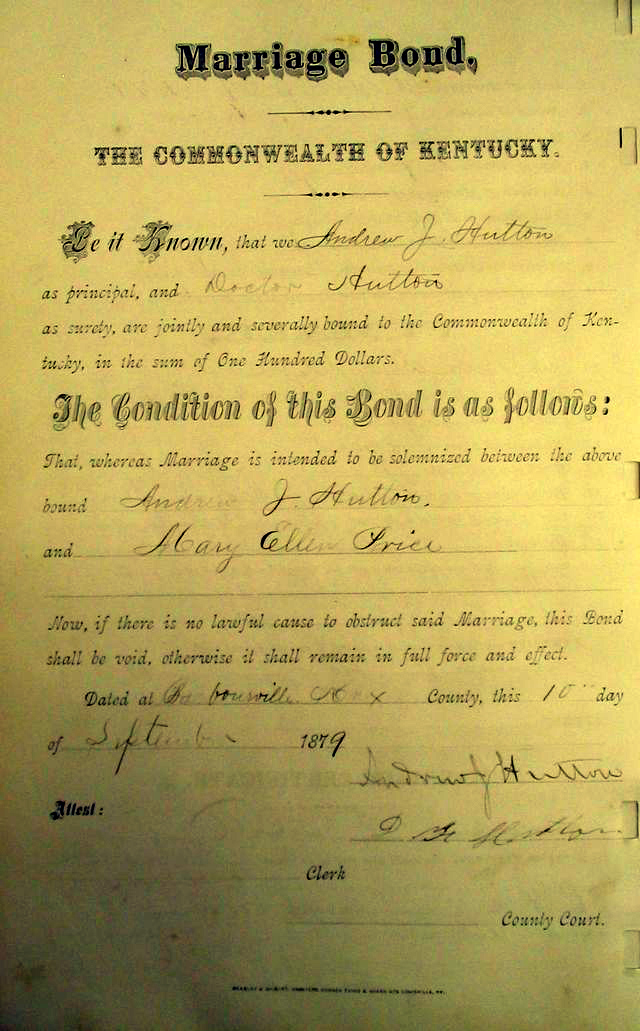 Marriage Bond,
THE COMMONWEALTH OF KENTUCKY.
Be it Known, that we Andrew J. Hutton
as principal, and Doctor Hutton
as surety, are jointly and severally bound to the Commonwealth of Ken-
tucky, in the sum of One Hundred Dollars.
The Condition of this Bond is as follows:
That, whereas Marriage is intended to be solemnized between the above
bound Andrew J. Hutton.
and Mary Ellen Price
Now, if there is no lawful cause to obstruct said Marriage, this Bond
shall be void, otherwise it shall remain in full force and effect.
Dated at Barbourville Knox County, this 10 day
of September 1879
Andrew J Hutton
Attest:
D Hutton
Clerk
County Court.